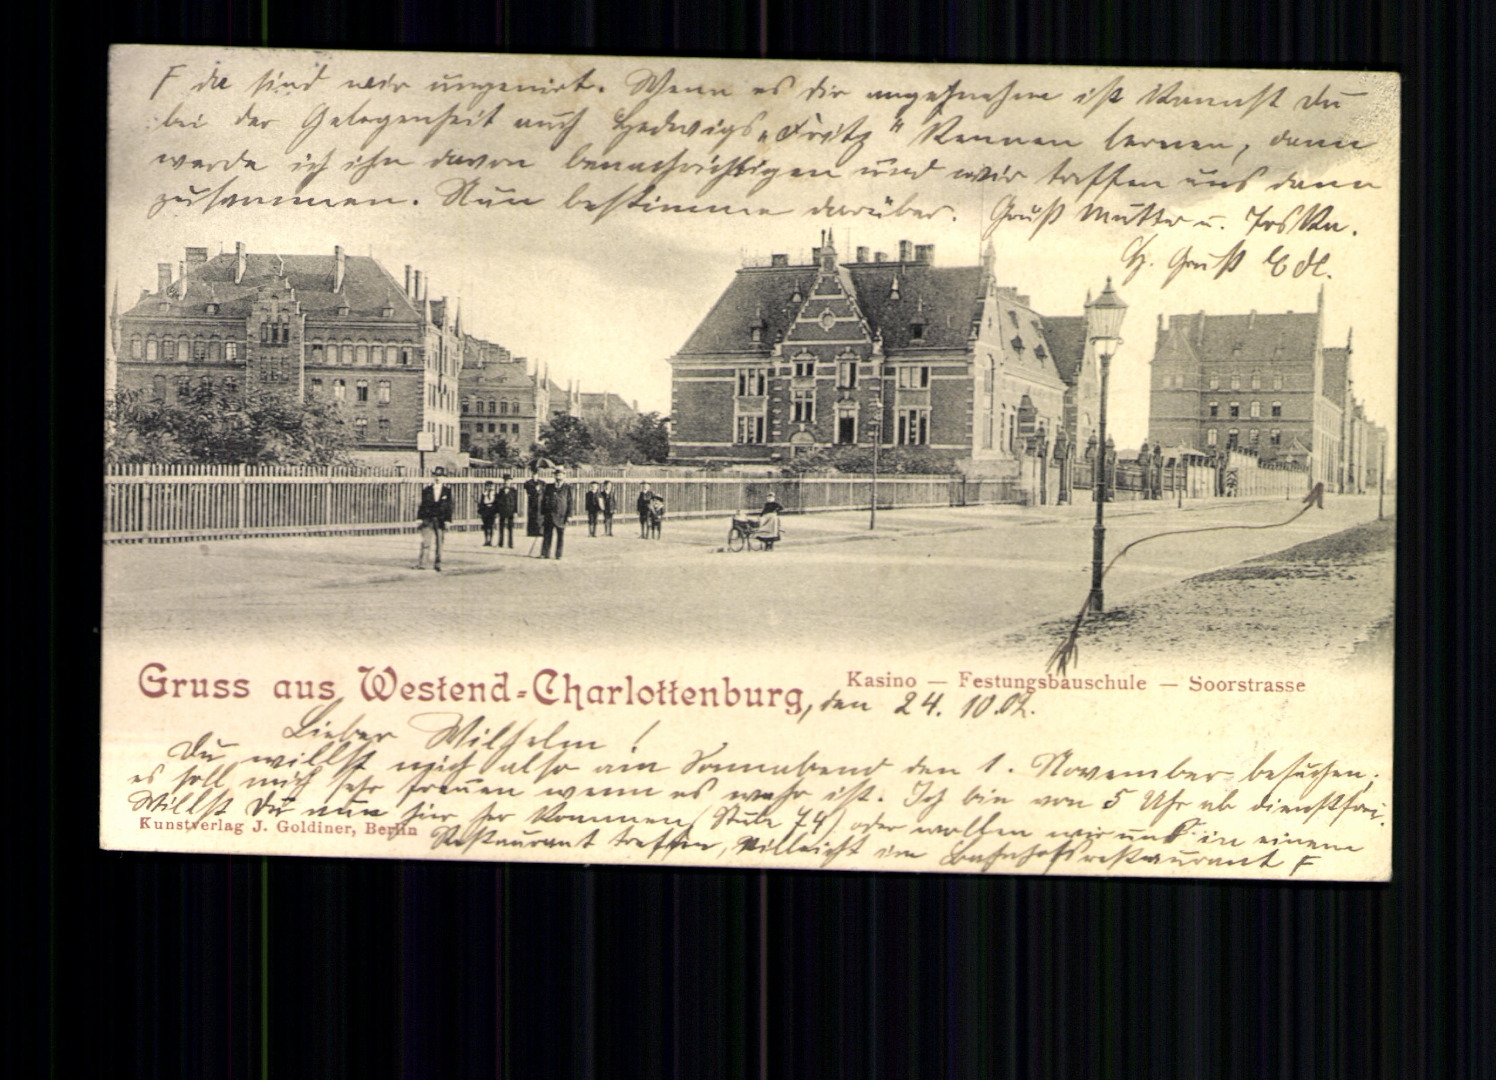 F da sind wir ungenirt. Wenn es dir angehnehm ist kannst Du
bei der Gelegenheit auch Hedwigs „Fritz" kennen lernen, dann
werde ich ihn davon benachrichtigen und wir treffen uns dann
zusammen. Nun bestimme darüber. Gruß Mutter u.
H. Gruß Edl.
Gruss aus Westend-Charlottenburg,
Kasino — Festungsbauschule — Soorstrasse
den 24. 10.02.
Lieber Wilhelm!
Du willst mich also am Sonnabend den 1. November besuchen.
es soll mich sehr freuen wenn es wahr ist. Ich bin von 5 Uhr ab dienstfrei.
Willst Du nun hier her kommen (Stube 74) oder wollen wir uns in einem
Kunstverlag J. Goldiner, Berlin
Restaurant treffen, villeicht im Bahnhofsrestaurant F